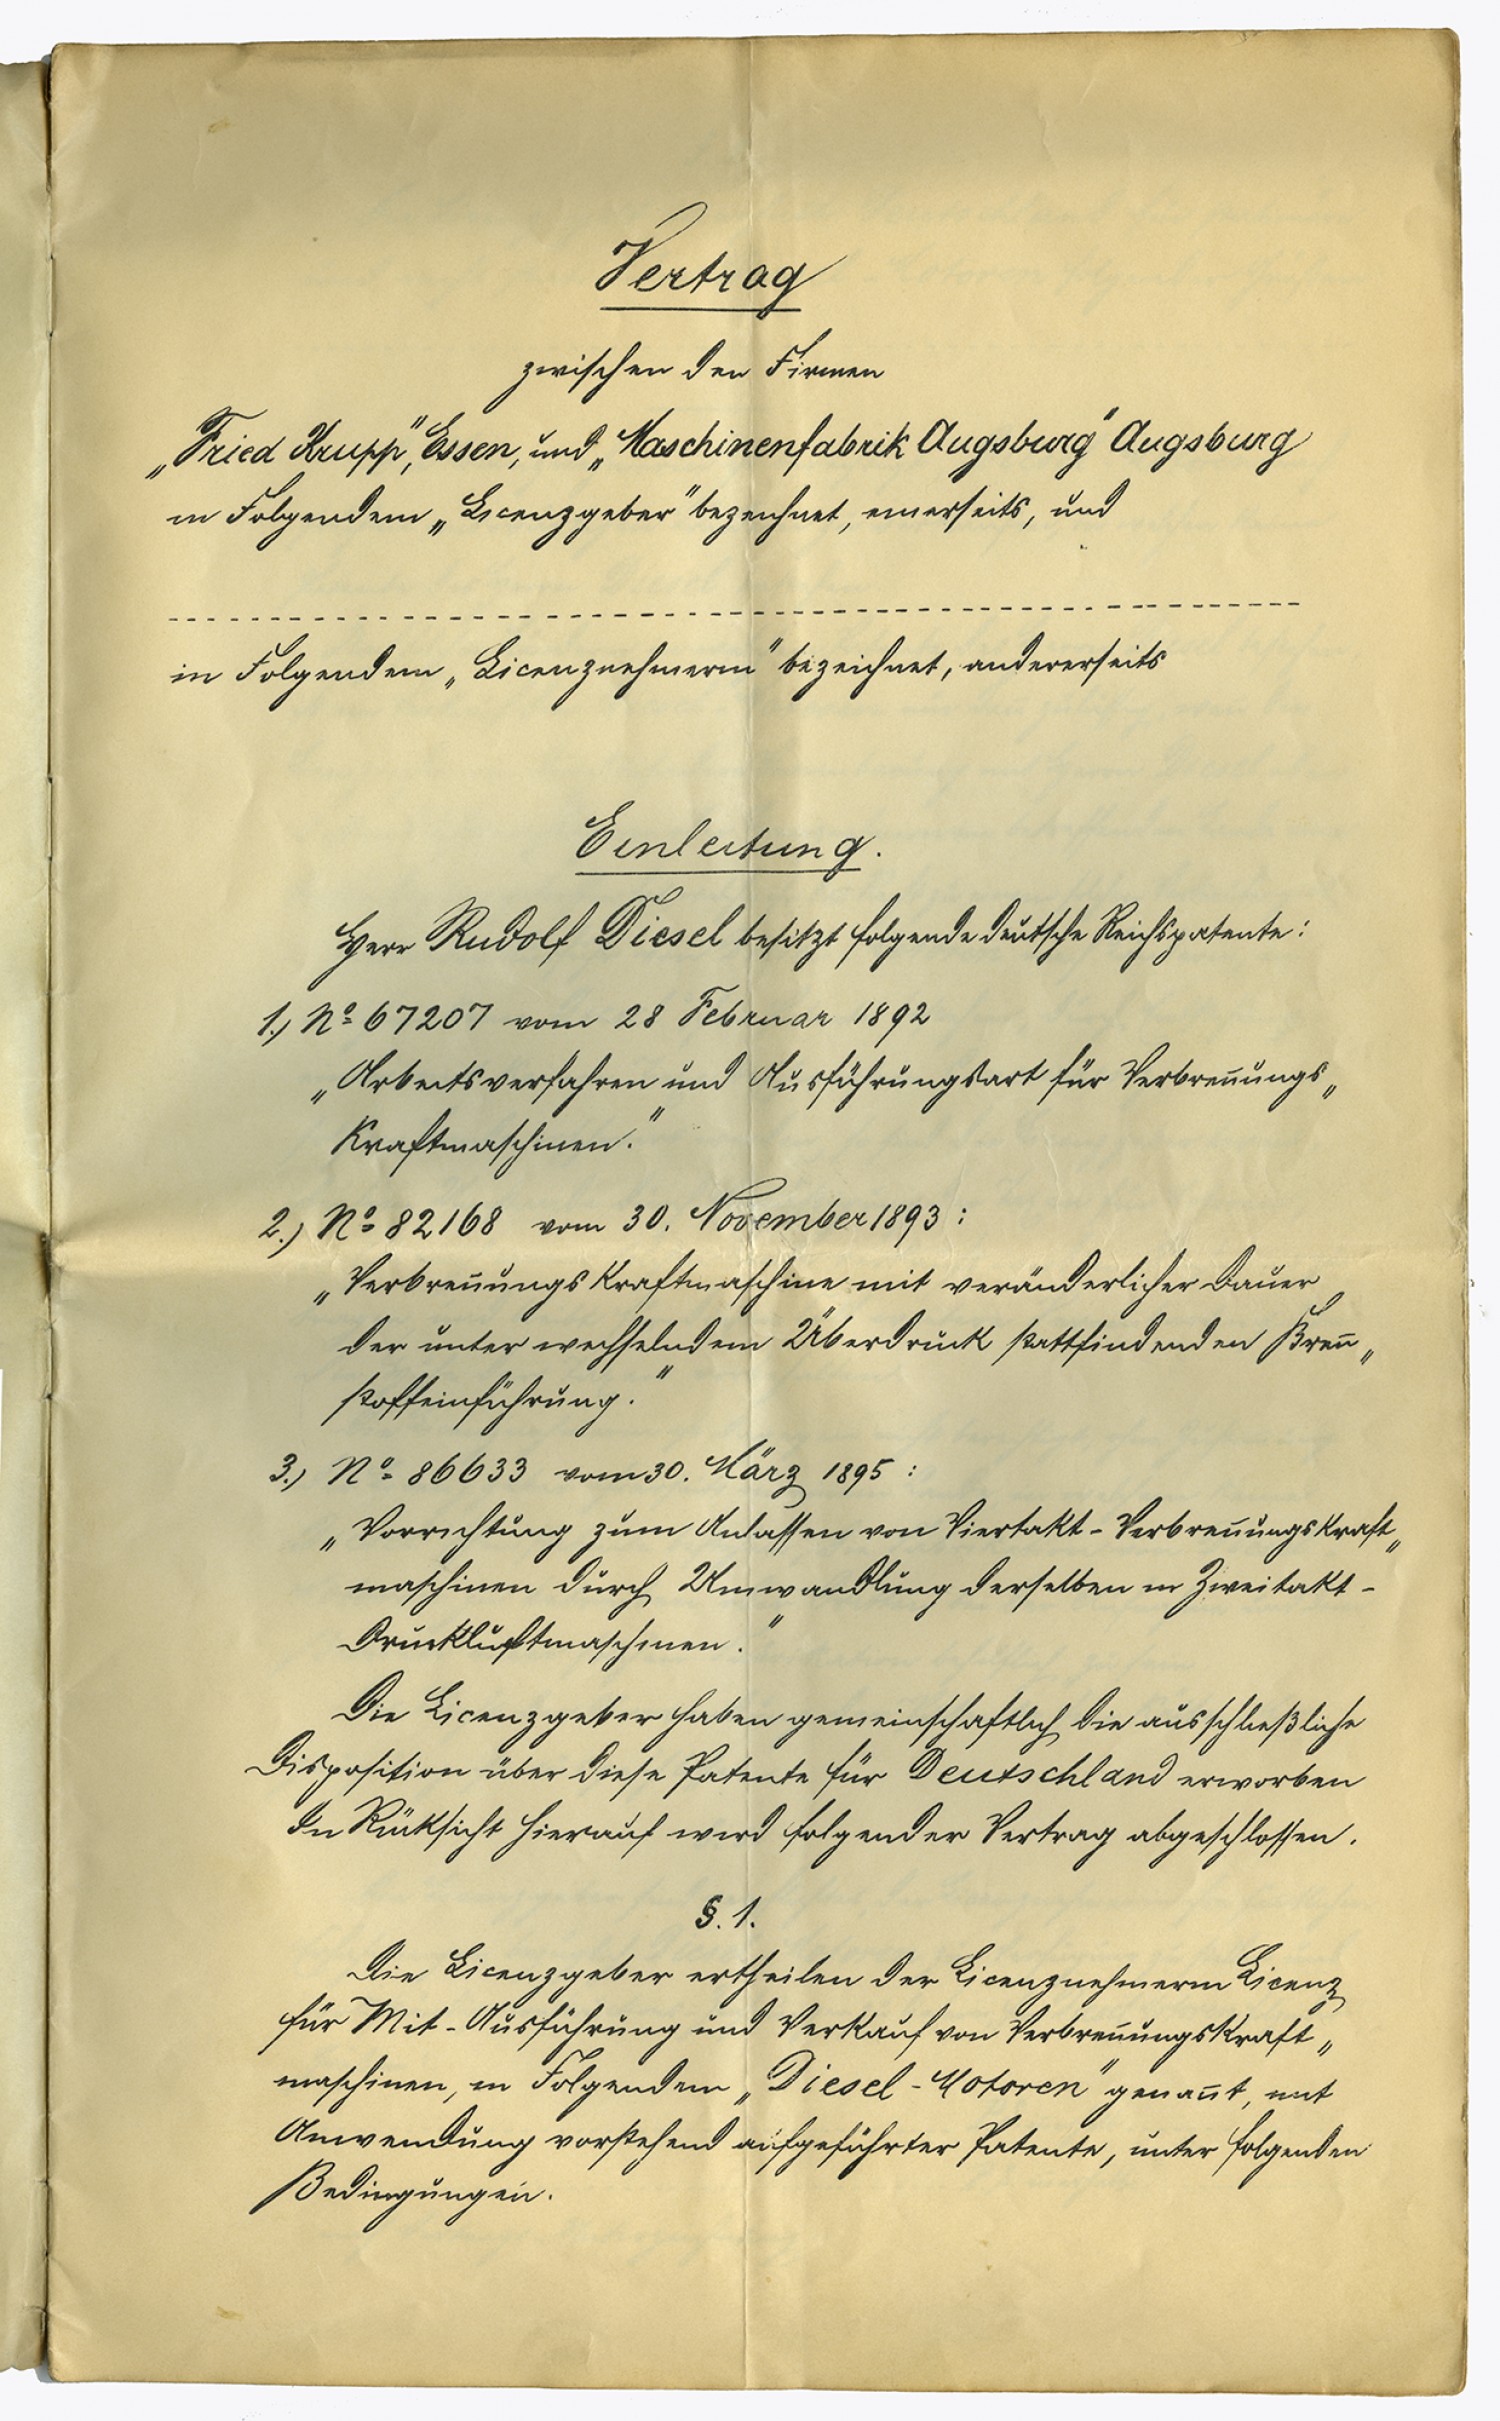 Vertrag
zwischen den Firmen
„Fried Krupp“, Essen, und „Maschinenfabrik Augsburg“ Augsburg
in Folgendem „Licenzgeber“ bezeichnet, einerseits, und
in Folgendem „Licenznehmerin“ bezeichnet, andererseits
Einleitung.
Herr Rudolf Diesel besitzt folgende deutsche Reichspatente:
1.) No 67207 vom 28 Februar 1892
„Arbeitsverfahren und Ausführungsart für Verbrennungs„
Kraftmaschinen.“
2.) No 82168 vom 30. November 1893:
„Verbrennungskraftmaschine mit veränderlicher Dauer
der unter wechselndem Überdruck stattfindenden Brenn„
stoffeinführung.“
3.) No 86633 vom 30. März 1895:
„Vorrichtung zum Anlassen von Viertakt-Verbrennungskraft„
maschinen durch Umwandlung derselben in Zweitakt-
Druckluftmaschinen.“
Die Licenzgeber haben gemeinschaftlich die ausschließliche
Disposition über diese Patente für Deutschland erworben
In Rücksicht hierauf wird folgender Vertrag abgeschlossen.
§. 1.
Die Licenzgeber ertheilen der Licenznehmerin Licenz
für Mit-Ausführung und Verkauf von Verbrennungskraft„
maschinen, in Folgendem „Diesel-Motoren“ genannt, mit
Anwendung vorstehend aufgeführter Patente, unter folgenden
Bedingungen.